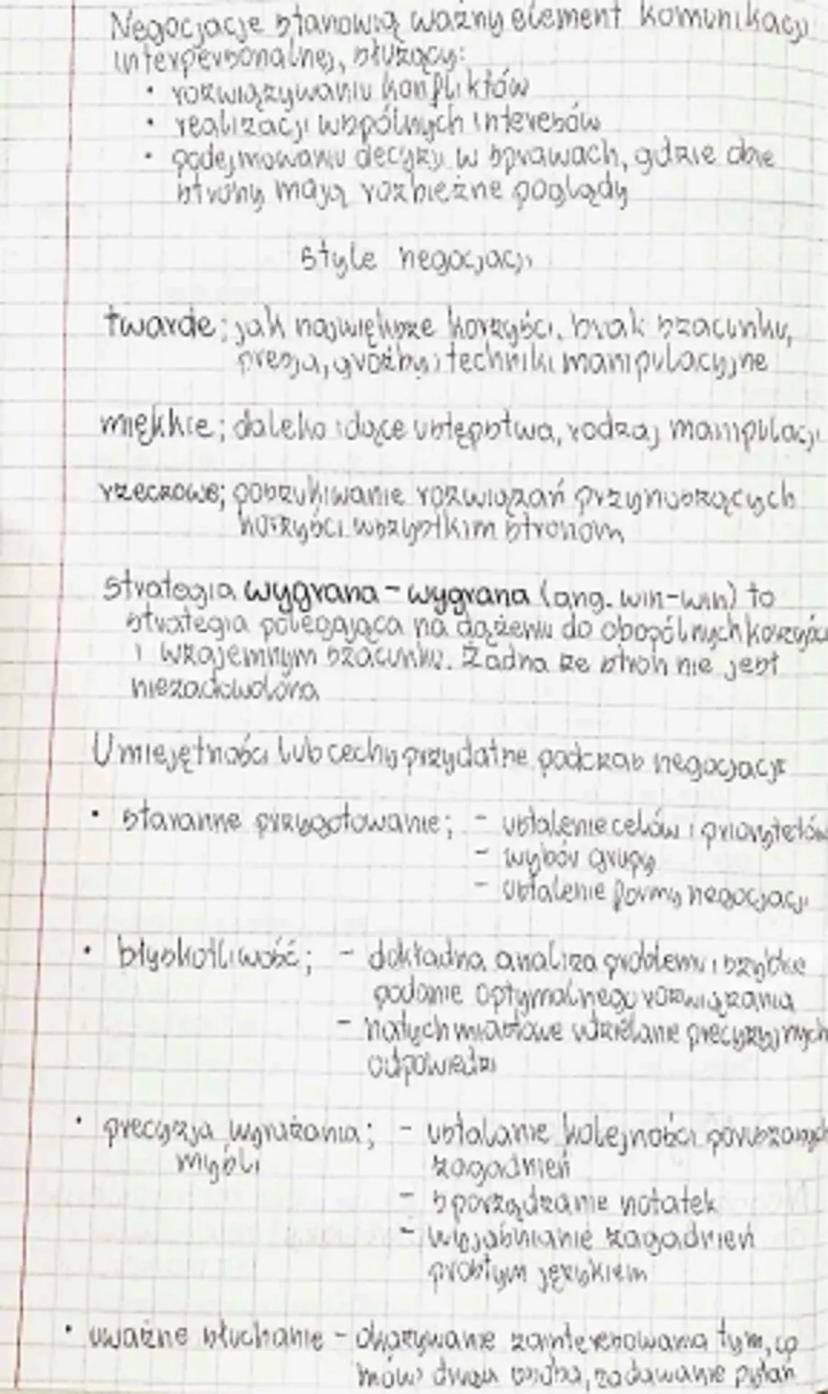 Negocjacje stanowią ważny element komunikacji
interpersonalnej, służący:
• rozwiązywaniu konfliktów
• realizacji wspólnych interesów
• podejmowaniu decyzji w sprawach, gdzie obie
strony mają rozbieżne poglądy
Style negocjacji
twarde; jak największe korzyści, brak szacunku,
presja, groźby i techniki manipulacyjne
miękkie; daleko idące ustępstwa, rodzaj manipulacji
rzeczowe; poszukiwanie rozwiązań przynoszących
korzyści wszystkim stronom
strategia wygrana - wygrana (ang. win-win) to
strategia polegająca na dążeniu do obopólnych korzyści
i wzajemnym szacunku. Żadna ze stron nie jest
niezadowolona
Umiejętności lub cechy przydatne podczas negocjacji
• staranne przygotowanie; - ustalenie celów i priorytetów
- wybór grupy
- ustalenie formy negocjacji
• błyskotliwość; - dokładna analiza problemu i szybkie
podanie optymalnego rozwiązania
- natychmiastowe udzielanie precyzyjnych
odpowiedzi
• precyzja wyrażania; - ustalanie kolejności poruszanych
myśli zagadnień
- sporządzanie notatek
- wyjaśnianie zagadnień
prostym językiem
• uważne słuchanie - okazywanie zainteresowania tym, co
mówi druga osoba, zadawanie pytań